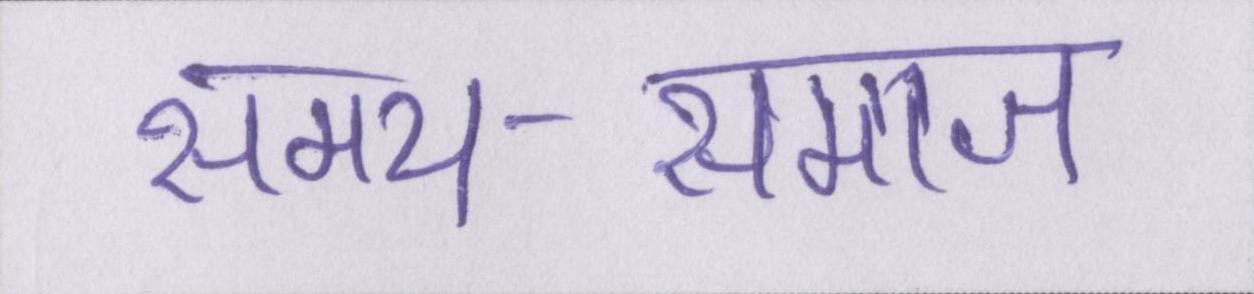 समय-समाज